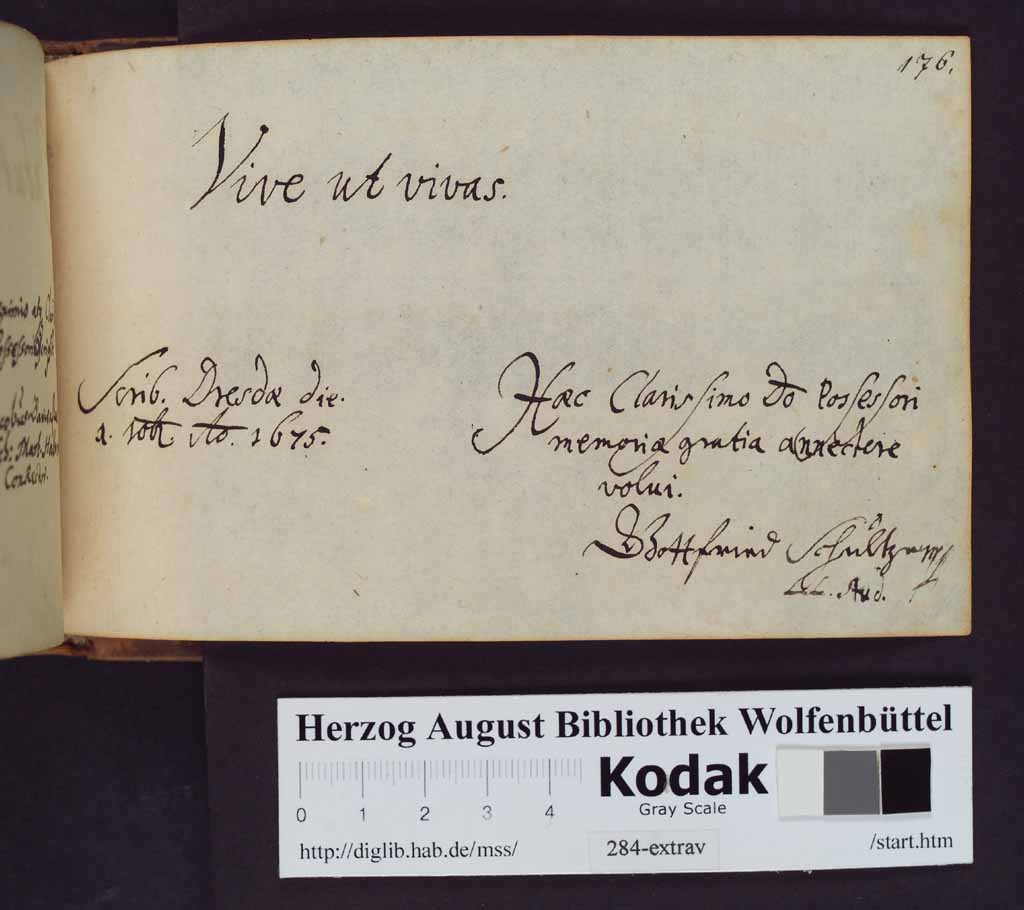 176.
Vive ut vivas.
Scrib. Dresdæ die.
Ao. 1675.
Hæc Clarissimo Do Possessori
memoriæ gratia annectere
volui.
Gottfried Schültz
LL. Aud.
Herzog August Bibliothek Wolfenbüttel
Kodak
Gray Scale
0 1 2 3 4
http://diglib.hab.de/mss/
284-extrav
/start.htm